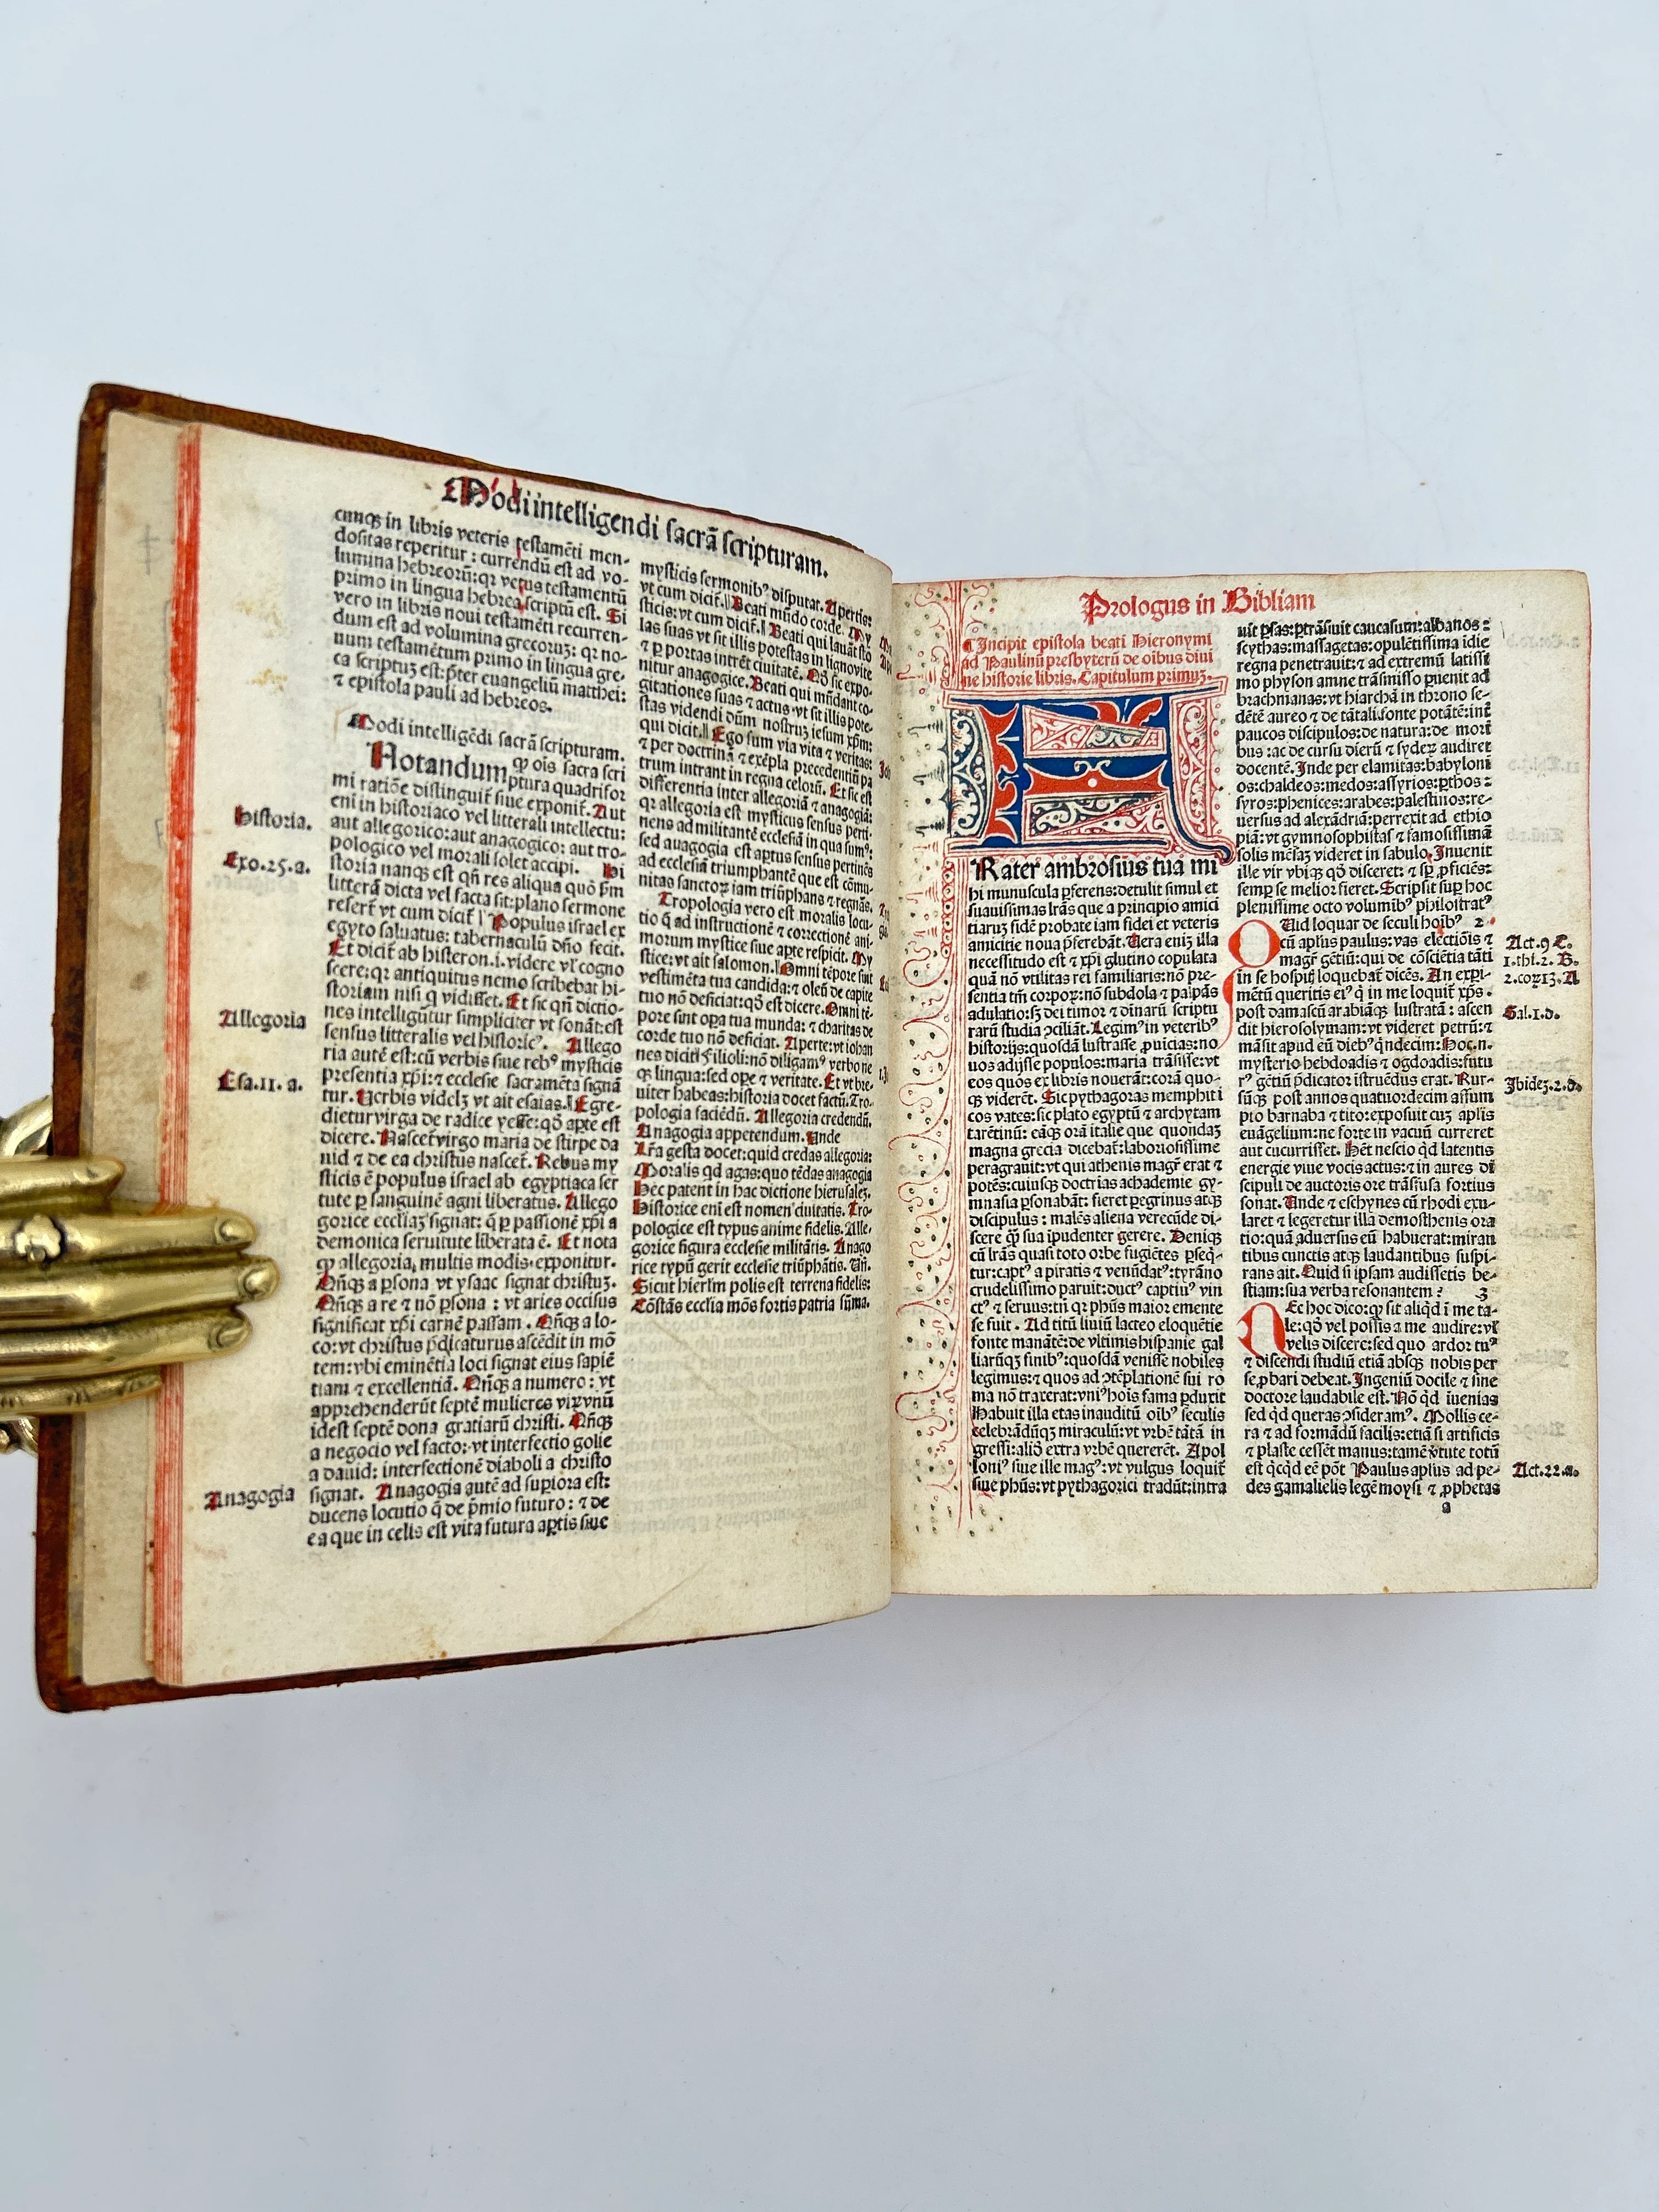 Modi intelligendi sacrã scripturam.
cunqꝫ in libris veteris testamẽti men-
dositas reperitur : currendũ est ad vo-
lumina hebreorũ: qꝛ vetus testamentũ
primo in lingua hebrea scriptũ est. Si
vero in libris noui testamẽti recurren-
dum est ad volumina grecoruꝫ: qꝛ no-
uum testamẽtum primo in lingua gre-
ca scriptuꝫ est: p̃ter euangeliũ matthei:
⁊ epistola pauli ad hebreos.
Modi intelligẽdi sacrã scripturam.
Notandum ꝙ ois sacra scri
ptura quadrifor
mi ratiõe distinguit̃ siue exponit̃. Aut
eni in historiaco vel litterali intellectu:
aut allegorico: aut anagogico: aut tro-
pologico vel morali solet accipi. Hi
Historia.
storia nanqꝫ est qñ res aliqua quõ ẜm
Exo.25.a.
litterã dicta vel facta sit: plano sermone
refert̃ vt cum dicit̃ Populus israel ex
egyto saluatus: tabernaculũ dño fecit.
Et dicit̃ ab histeron .i. videre vl̃ cogno
scere: qꝛ antiquitus nemo scribebat hi-
storiam nisi q̃ vidisset. Et sic qñ dictio-
nes intelligũtur simpliciter vt sonãt: est
sensus litteralis vel historicꝰ. Allego
Allegoria
ria autẽ est: cũ verbis siue rebꝰ mysticis
presentia xp̃i: ⁊ ecclesie sacramẽta signã
tur. Verbis videlꝫ vt ait esaias. Egre-
Esa.11. a.
dietur virga de radice yesse: qõ aꝑte est
dicere. Nascet̃ virgo maria de stirpe da
uid ⁊ de ea christus nascet̃. Rebus my
sticis ẽ populus israel ab egyptiaca ser
tute ꝑ sanguinẽ agni liberatus. Allego
gorice eccliaꝫ signat: q̃ ꝑ passionẽ xp̃i a
demonica seruitute liberata ẽ. Et nota
ꝙ allegoria, multis modis exponitur.
Qñqꝫ a ꝑsona vt ysaac signat christuꝫ.
Qñqꝫ a re ⁊ nõ ꝑsona : vt aries occisus
significat xp̃i carnẽ passam . Qñqꝫ a lo-
co: vt christus p̃dicaturus ascẽdit in mõ
tem: vbi eminẽtia loci signat eius sapiẽ
tiam ⁊ excellentiã. Qñqꝫ a numero : vt
apprehenderũt septẽ mulieres virũ vnũ
idest septẽ dona gratiarũ christi. Qñqꝫ
a negocio vel facto: vt interfectio golie
a dauid: interfectionẽ diaboli a christo
signat. Anagogia autẽ ad supiora est:
Anagogia
ducens locutio q̃ de p̃mio futuro : ⁊ de
ea que in celis est vita futura aꝑtis siue
mysticis sermonibꝰ disputat. Apertis:
vt cum dicit̃. Beati mũdo corde. My
sticis: vt cum dicit̃. Beati qui lauãt sto
las suas vt sit illis potestas in ligno vite
⁊ ꝑ portas intrẽt ciuitatẽ. Qõ sic expo-
nitur anagogice. Beati qui mũdant co-
gitationes suas ⁊ actus vt sit illis pote-
stas videndi dũm nostruꝫ iesum xp̃m:
qui dicit. Ego sum via vita ⁊ veritas:
⁊ per doctrinã ⁊ exẽpla precedentiũ pa
trum intrant in regna celorũ. Et sic est
differentia inter allegoriã ⁊ anagogiã:
qꝛ allegoria est mysticus sensus perti-
nens ad militantẽ ecclesiã in qua sumꝰ:
sed anagogia est aꝑtus sensus pertinẽs
ad ecclesiã triumphantẽ que est cõmu-
nitas sanctoꝝ iam triũphans ⁊ regnãs.
Tropologia vero est moralis locu-
tio q̃ ad instructionẽ ⁊ correctionẽ ani-
morum mystice siue aꝑte respicit. My
stice: vt ait salomon. Omni tẽpore sint
vestimẽta tua candida: ⁊ oleũ de capite
tuo nõ deficiat: qõ est dicere. Omni tẽ-
pore sint oꝑa tua munda: ⁊ charitas de
corde tuo nõ deficiat. Aperte: vt iohan
nes dicit Filioli: nõ diligamꝰ verbo ne
qꝫ lingua: sed oꝑe ⁊ veritate. Et vt bre-
uiter habeas: historia docet factũ. Tro-
pologia faciẽdũ. Allegoria credendũ.
Anagogia appetendum. Unde
Lr̃a gesta docet: quid credas allegoria:
Moralis qd agas: quo tẽdas anagogia
Hec patent in hac dictione hierusalẽ.
Historice eni est nomen ciuitatis. Tro-
pologice est typus anime fidelis. Alle-
gorice figura ecclesie militãtis. Anago
rice typũ gerit ecclesie triũphãtis. Uñ.
Sicut hierlm̃ polis est terrena fidelis:
Cõstãs ecclia mõs fortis patria sũma.
Prologus in Bibliam
Incipit epistola beati Hieronymi
ad Paulinũ presbyterũ de oibus diui
ne historie libris. Capitulum primuꝫ.
FRater ambrosius tua mi
hi munuscula ꝑferens: detulit simul et
suauissimas lr̃as que a principio amici
tiaruꝫ fidẽ probate iam fidei et veteris
amicitie noua p̃ferebãt. Uera eniꝫ illa
necessitudo est ⁊ xp̃i glutino copulata
quã nõ vtilitas rei familiaris: nõ pre-
sentia tm̃ corpoꝝ: nõ subdola ⁊ palpãs
adulatio: sꝫ dei timor ⁊ diuinarũ scriptu
rarũ studia ꝯciliãt. Legimꝰ in veteribꝰ
historijs: quosdã lustrasse ꝓuicias: no
uos adijsse populos: maria trãsisse: vt
eos quos ex libris nouerãt: corã quo-
qꝫ viderẽt. Sic pythagoras memphiti
cos vates: sic plato egyptũ ⁊ archytam
tarẽtinũ: eãqꝫ orã italie que quondaꝫ
magna grecia dicebat̃: laboriosissime
peragrauit: vt qui athenis magr̃ erat ⁊
potẽs: cuiusqꝫ doctrias achademie gy-
mnasia ꝑsonabãt: fieret ꝑegrinus atqꝫ
discipulus : malẽs aliena verecũde di-
scere q̃ sua ipudenter gerere. Deniqꝫ
cũ lr̃as quasi toto orbe fugiẽtes ꝑseq̃-
tur: captꝰ a piratis ⁊ venũdatꝰ: tyrãno
crudelissimo paruit: ductꝰ captiuꝰ vin
ctꝰ ⁊ seruus: tñ qꝛ phũs maior emente
se fuit . Ad titũ liuiũ lacteo eloquẽtie
fonte manãtẽ: de vltimis hispanie gal
liarũqꝫ finibꝰ: quosdã venisse nobiles
legimus: ⁊ quos ad ꝯtẽplationẽ sui ro
ma nõ traxerat: vniꝰ hois fama ꝑduxit
Habuit illa etas inauditũ oibꝰ seculis
celebrãdũqꝫ miraculũ: vt vrbẽ tãtã in
gressi: aliõ extra vrbẽ quererẽt. Apol
loniꝰ siue ille magꝰ: vt vulgus loquit̃
siue phũs: vt pythagorici tradũt: intra
uit ꝑsas: ꝑtrãsiuit caucasum: albanos:
scythas: massagetas: opulẽtissima idie
regna penetrauit: ⁊ ad extremũ latissi
mo physon amne trãsmisso ꝑuenit ad
brachmanas: vt hiarchã in throno se-
dẽtẽ aureo ⁊ de tãtali fonte potãtẽ: int̃
paucos discipulos: de natura: de mori
bus : ac de cursu dierũ ⁊ sydeꝝ audiret
docentẽ. Inde per elamitas: babyloni
os: chaldeos: medos: assyrios: ꝑthos:
syros: phenices: arabes: palestinos: re-
uersus ad alexãdriã: perrexit ad ethio
piã: vt gymnosophistas ⁊ famosissimã
solis mẽsaꝫ videret in sabulo. Inuenit
ille vir vbiqꝫ qõ disceret: ⁊ sꝑ ꝓficiẽs:
semꝑ se melior fieret. Scripsit suꝑ hoc
plenissime octo voluminibꝰ philostratꝰ
QUid loquar de seculi hoibꝰ 2.
cũ aplus paulus: vas electiõis ⁊
Act.9 C.
magr̃ gẽtiũ: qui de cõsciẽtia tãti
1.thi.2. B.
in se hospitis loquebat̃ dicẽs. An expi-
2.coꝝ13.A
mẽtũ queritis eiꝰ q̃ in me loquit̃ xp̃s.
post damascũ arabiãqꝫ lustratã : ascen
Gal.1.d.
dit hierosolymam: vt videret petrũ: ⁊
mãsit apud eũ diebꝰ q̃ndecim: Hoc .n.
mysterio hebdoadis ⁊ ogdoadis: futu
rꝰ gẽtiũ p̃dicator istruẽdus erat. Rur-
sũqꝫ post annos quatuordecim assũm
Ibideꝫ.2.a.
pto barnaba ⁊ tito: exposuit cuꝫ aplis
euãgelium: ne forte in vacuũ curreret
aut cucurrisset. Hẽt nescio qd latentis
energie viue vocis actus: ⁊ in aures di
scipuli de auctoris ore trãsfusa fortius
sonat. Unde ⁊ eschynes cũ rhodi exu-
laret ⁊ legeretur illa demosthenis ora
tio: quã aduersus eũ habuerat: miran
tibus cunctis atqꝫ laudantibus suspi-
rans ait. Quid si ipsam audissetis be-
stiam: sua verba resonantem? 3
NEc hoc dico: ꝙ sit aliqd ĩ me ta-
le: qõ vel possis a me audire: vl̃
velis discere: sed quo ardor tuꝰ
⁊ discendi studiũ etiã absqꝫ nobis per
se ꝓbari debeat. Ingeniũ docile ⁊ sine
doctore laudabile est. Nõ qd iuenias
sed qd queras ꝯsideramꝰ. Mollis ce-
ra ⁊ ad formãdũ facilis: etiã si artificis
⁊ plaste cessẽt manus: tamẽ v̾tute totũ
est qcqd eẽ põt. Paulus aplus ad pe-
Act.22.a.
des gamalielis legẽ moysi ⁊ ꝓphetas
a